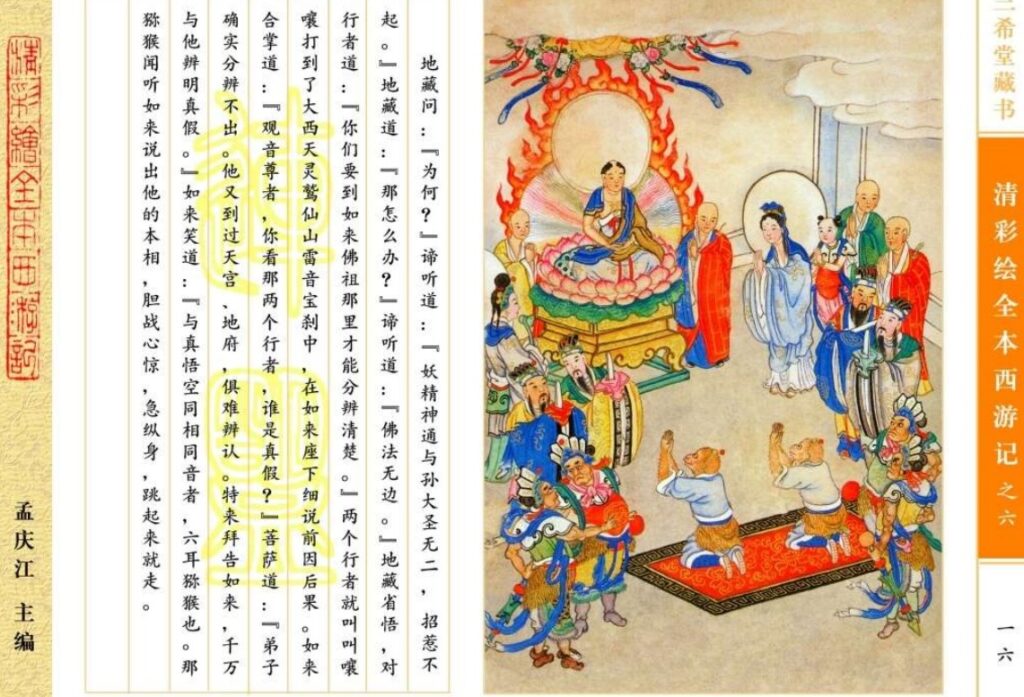 希堂藏书
清彩绘全本西游记之六
一六
地藏问：『为何？』谛听道：『妖精神通与孙大圣无二，招惹不
起。』地藏道：『那怎么办？』谛听道：『佛法无边。』地藏省悟，对
行者道：『你们要到如来佛祖那里才能分辨清楚。』两个行者就叫叫嚷
嚷打到了大西天灵鹫仙山雷音宝刹中，在如来座下细说前因后果。如来
合掌道：『观音尊者，你看那两个行者，谁是真假？』菩萨道：『弟子
确实分辨不出。他又到过天宫、地府，俱难辨认。特来拜告如来，千万
与他辨明真假。』如来笑道：『与真悟空同相同音者，六耳猕猴也。那
猕猴闻听如来说出他的本相，胆战心惊，急纵身，跳起来就走。
清彩繪全本西游記
孟庆江 主编